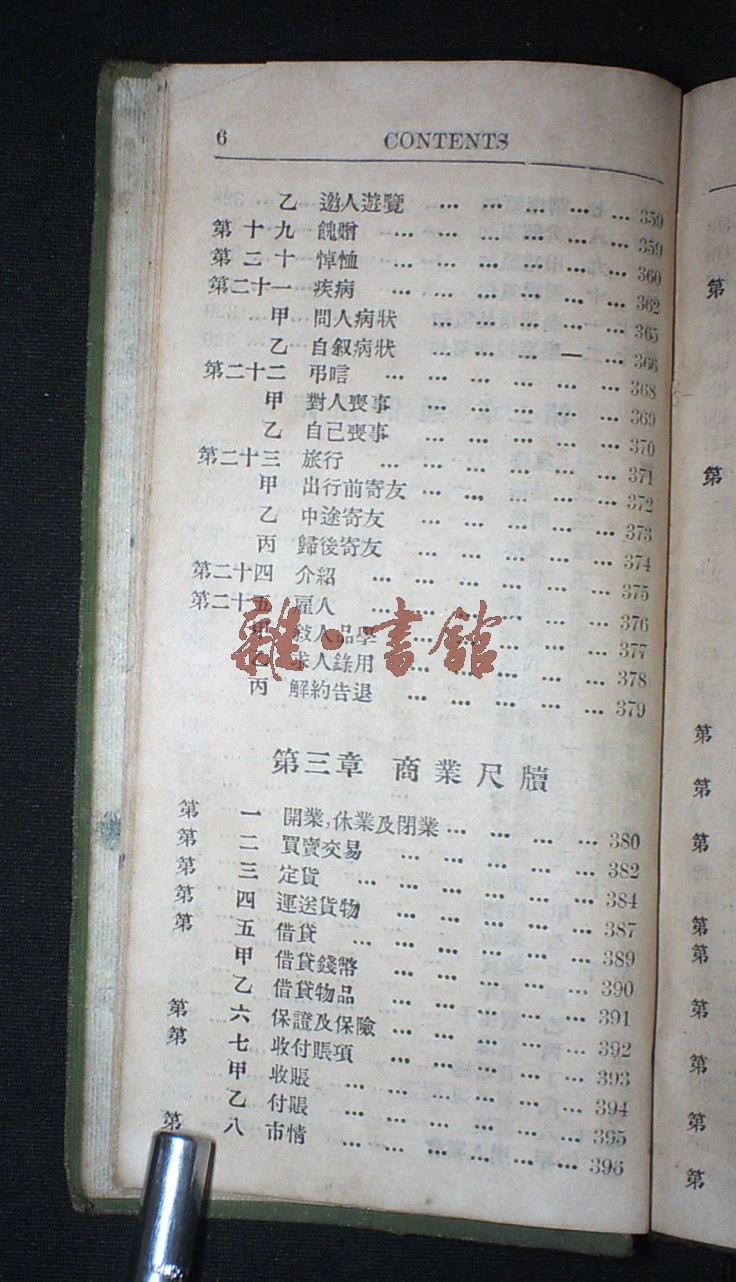 6 CONTENTS
乙 邀人遊覽 ... ... ... ... ... 359
第十九 餽贈 ... ... ... ... ... ... 359
第二十 悼恤 ... ... ... ... ... ... 360
第二十一 疾病 ... ... ... ... ... ... 362
甲 問人病狀 ... ... ... ... ... 365
乙 自叙病狀 ... ... ... — ... 366
第二十二 弔唁 ... ... ... ... ... ... 368
甲 對人喪事 ... ... ... ... ... 369
乙 自己喪事 ... ... ... ... ... 370
第二十三 旅行 ... ... ... ... ... ... 371
甲 出行前寄友 ... ... ... ... ... 372
乙 中途寄友 ... ... ... ... ... 373
丙 歸後寄友 ... ... ... ... ... 374
第二十四 介紹 ... ... ... ... ... ... 375
第二十五 雇人 ... ... ... ... ... ... 376
甲 敍人品學 ... ... ... ... ... 377
乙 求人錄用 ... ... ... ... ... 378
丙 解約告退 ... ... ... ... ... 379
雜·書館
第三章 商業尺牘
第一 開業,休業及閉業 ... ... ... ... 380
第二 買賣交易 ... ... ... ... ... 382
第三 定貨 ... ... ... ... ... ... 384
第四 運送貨物 ... ... ... ... ... 387
第五 借貸 ... ... ... ... ... ... 389
甲 借貸錢幣 ... ... ... ... ... 390
乙 借貸物品 ... ... ... ... ... 391
第六 保證及保險 ... ... ... ... ... 392
第七 收付賬項 ... ... ... ... ... 393
甲 收賬 ... ... ... ... ... ... 394
乙 付賬 ... ... ... ... ... ... 395
第八 市情 ... ... ... ... ... ... 396
第
第
第
第
第
第
第
第
第
第
第